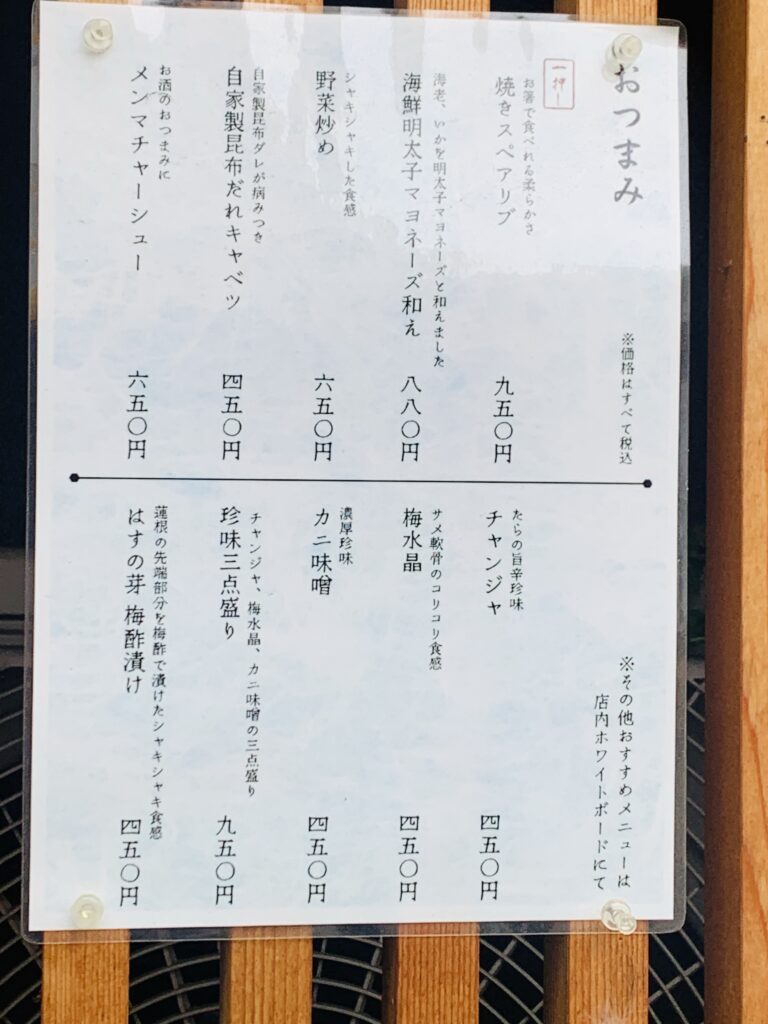 おつまみ
※価格はすべて税込
一押し
お箸で食べれる柔らかさ
焼きスペアリブ
九五〇円
海老、いかを明太子マヨネーズと和えました
海鮮明太子マヨネーズ和え
八八〇円
シャキシャキした食感
野菜炒め
六五〇円
自家製昆布ダレが病みつき
自家製昆布だれキャベツ
四五〇円
お酒のおつまみに
メンマチャーシュー
六五〇円
※その他おすすめメニューは
店内ホワイトボードにて
たらの旨辛珍味
チャンジャ
四五〇円
サメ軟骨のコリコリ食感
梅水晶
四五〇円
濃厚珍味
カニ味噌
四五〇円
チャンジャ、梅水晶、カニ味噌の三点盛り
珍味三点盛り
九五〇円
蓮根の先端部分を梅酢で漬けたシャキシャキ食感
はすの芽 梅酢漬け
四五〇円